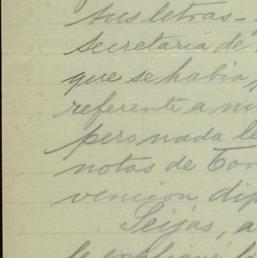 sus letras -
Secretaría de
que se había
referente a
pero nada le
notas de
vención dip
Seijas, a
le expliqué